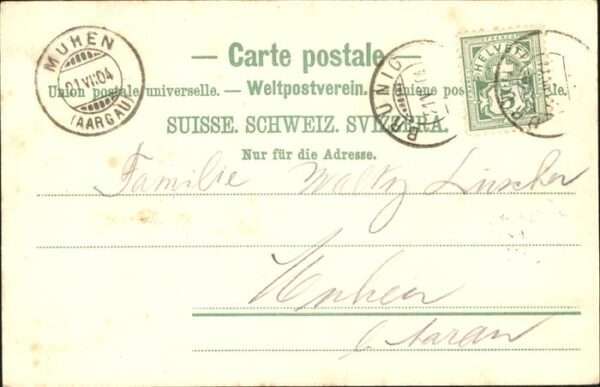 — Carte postale —
Union postale universelle. — Weltpostverein. — Unione postale universale.
SUISSE. SCHWEIZ. SVIZZERA.
Nur für die Adresse.
MUHEN
01 VII 04
(AARGAU)
BRÜNIG
HELVETIA
5
Familie Lüscher
Muhen
b/Aarau